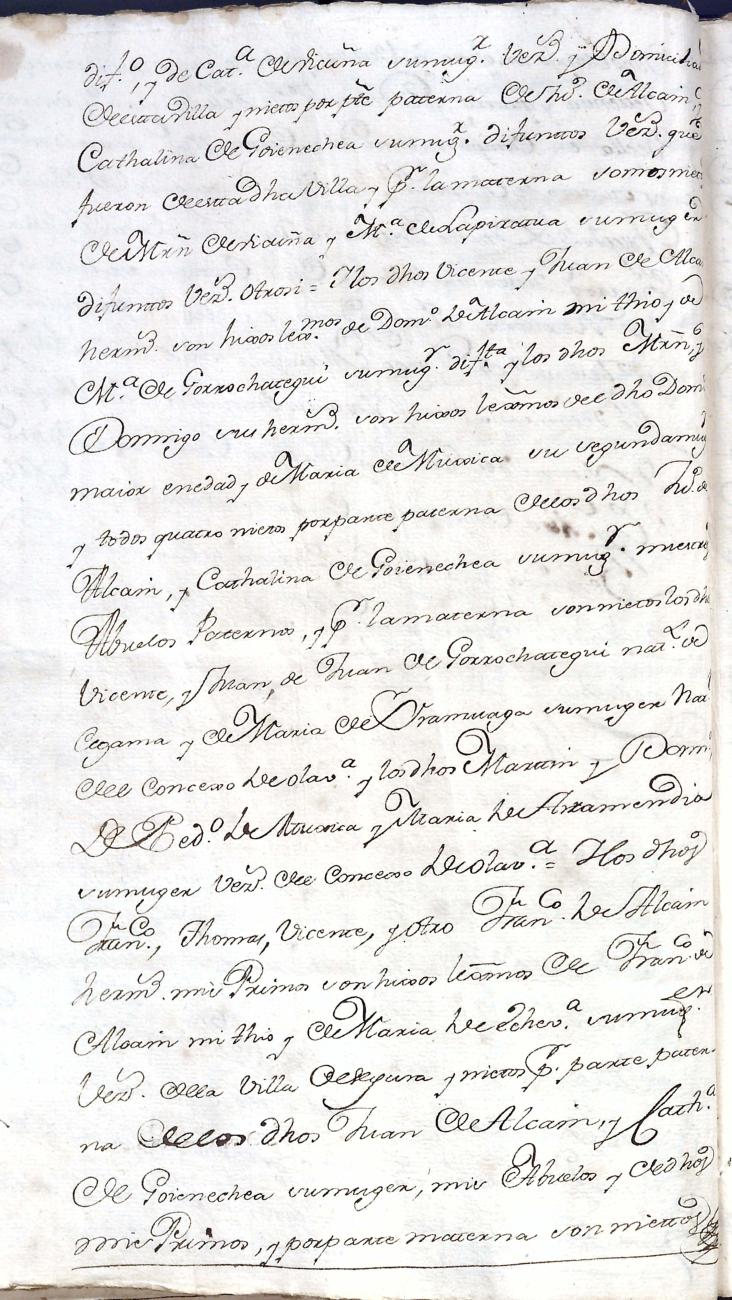 dif.o, y de Cat.a de Vicuña sumug.r Vez.s y Domicilia
de esta Villa y nietos por pte paterna de Ju.o de Alcain, y
Cathalina de Goienechea sumug.r difunttos Vez.s que
fueron de esta dha Villa y p.r la materna somos niet
de Mrñ de Vicuña y M.a de Lapiratua sumuger
difunttos Vez.s Otrosi = I los dhos Vicente y Juan de Alca
herm.s son hixos lex.mos de Dom.o de Alcain mi thio y de
M.a de Gorrochategui sumug.r dif.ta y los dhos Mrñ, y
Domingo sus herm.s son hixos lexmos del dho Dom
maior en edad y de Maria de Muxica su segundamug
y todos quatro nietos por parte paterna de los dhos Ju.o de
Alcain, y Cathalina de Goienechea sumug.r nuestros
Abuelos Paternos, y p.r la materna son nietos los dh
Vicente, y Juan, de Juan de Gorrochategui nat.l de
Cegama y de Maria de Aramuaga sumuger Nat
del Concexo de olav.a y los dhos Martin y Dom
De Ped.o de Muxica y Maria de Arramendia
sumuger Vez.s del Concexo de olav.a = I los dhos
Fran.co, Thomas, Vicente, y otro Fran.co de Alcain
herm.s mis Primos son hixos lexmos de Fran.co de
Alcain mi thio y de Maria de echev.a sumug.er
Vez.s de la Villa de Segura y nietos p.r parte pater-
na de los dhos Juan de Alcain, y Cath.a
de Goienechea sumuger, mis Abuelos y de dhos
mis Primos, y por parte materna son niettos